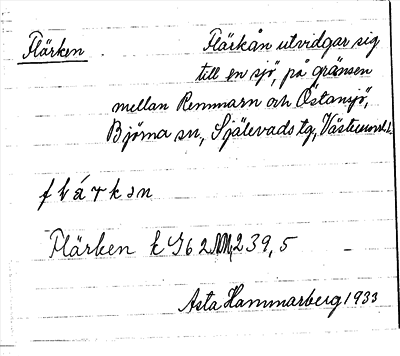 Flärken. Flärkån utvidgar sig
till en sjö, på gränsen
mellan Remmarn och Östansjö,
Björna sn, Själevads tg, Västernorrl.
Flärken k 962 239,5
Asta Hammarberg 1933